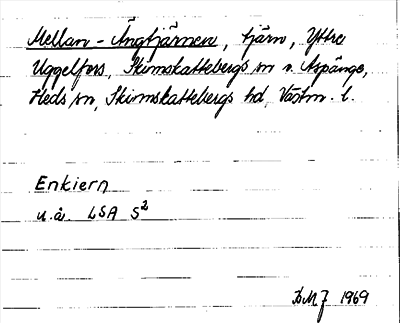 Mellan-Ängtjärnen, tjärn, Yttre
Uggelfors, Skinnskattebergs sn o. Aspänge,
Heds sn, Skinnskattebergs hd Västm. l.
Enkiern
u.å. LSA S2
1969